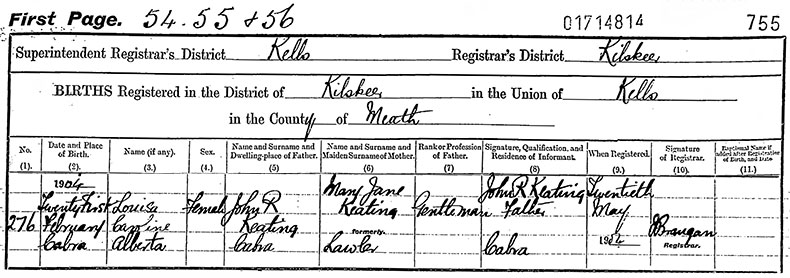 First Page. 54.55 & 56 01714814 755
Superintendent Registrar's District Kells Registrar's District Kilskeer
BIRTHS Registered in the District of Kilskeer in the Union of Kells
in the County of Meath
No. (1). Date and Place of Birth. (2.) Name (if any). (3.) Sex. (4.) Name and Surname and Dwelling-place of Father. (5) Name and Surname and Maiden Surname of Mother. (6) Rank or Profession of Father. (7) Signature, Qualification, and Residence of Informant. (8) When Registered. (9.) Signature of Registrar. (10.) Baptismal Name if added after Registration of Birth, and Date (11.)
1904 Mary Jane John R Keating Twentieth
Twenty First Louisa Female John R Keating Gentleman Father May
276 February Caroline Keating Formerly 1904 Brangan
Cabra Alberta Cabra Lawler Cabra Registrar.